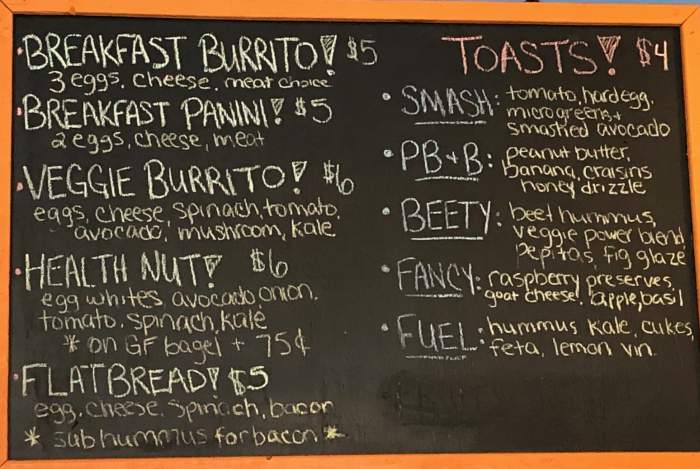 BREAKFAST BURRITO! $5
3 eggs, cheese, meat choice
BREAKFAST PANINI! $5
2 eggs, cheese, meat
VEGGIE BURRITO! $6
eggs, cheese, spinach, tomato,
avocado, mushroom, kale
HEALTH NUT! $6
egg whites, avocado, onion,
tomato, spinach, kale
* on GF bagel + 75¢
FLATBREAD! $5
egg, cheese, spinach, bacon
* sub hummus for bacon *
TOASTS! $4
• SMASH: tomato, hard egg,
microgreens +
smashed avocado
• PB+B: peanut butter,
banana, craisins
honey drizzle
• BEETY: beet hummus,
veggie power blend
pepitas, fig glaze
• FANCY: raspberry preserves,
goat cheese, apple, basil
• FUEL: hummus, kale, cukes,
feta, lemon vin.